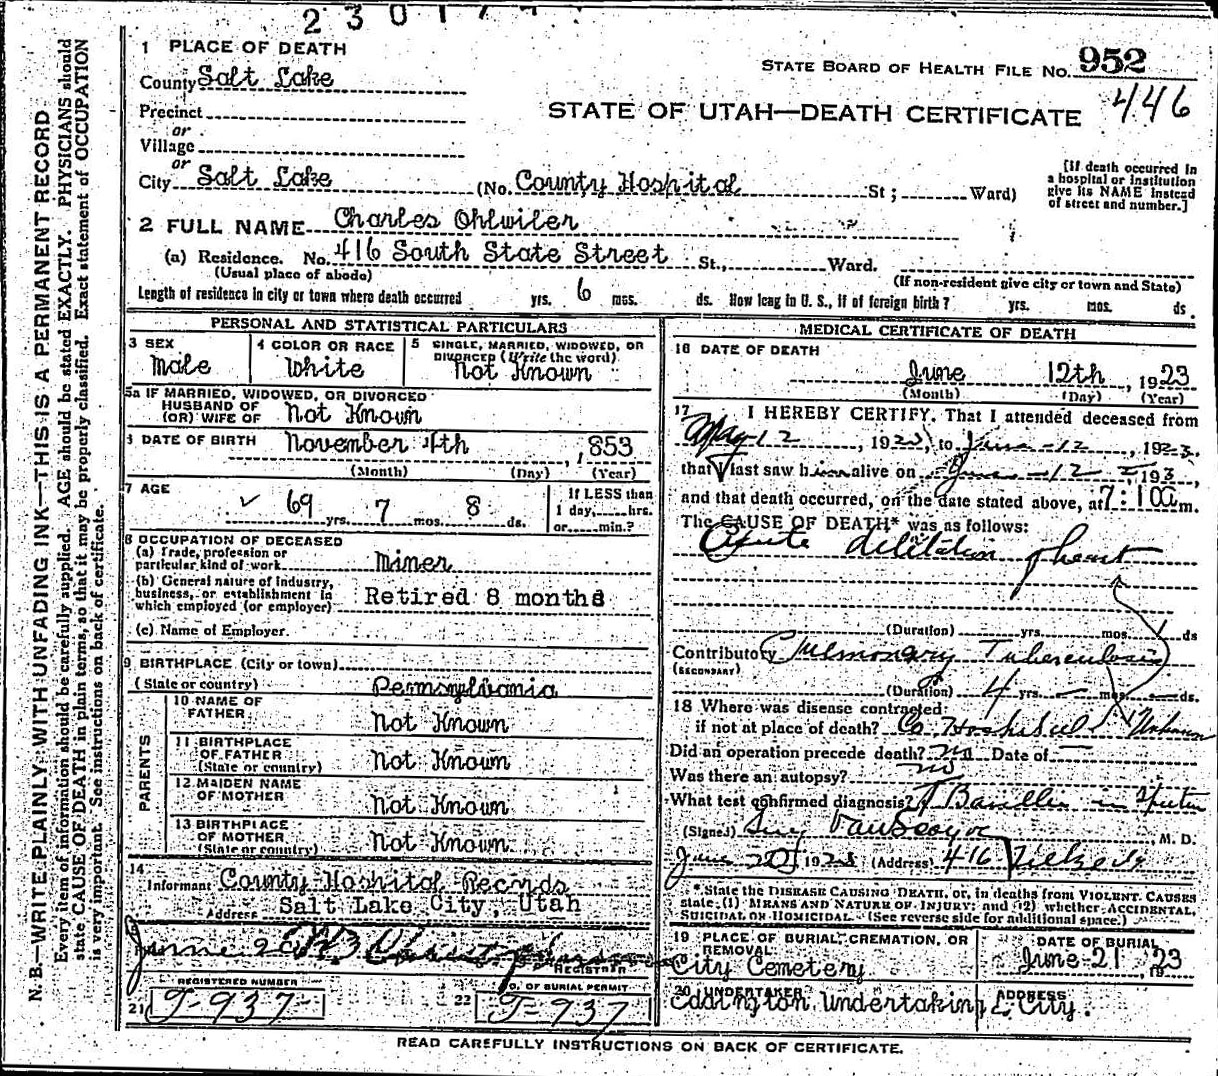 1 PLACE OF DEATH
County Salt Lake
STATE BOARD OF HEALTH FILE NO. 952
446
Precinct
or
Village
or
STATE OF UTAH—DEATH CERTIFICATE
City Salt Lake (No. County Hospital St; Ward)
[If death occurred in
a hospital or institution
give its NAME instead
of street and number.]
2 FULL NAME Charles Ohlwiler
(a) Residence. No. 416 South State Street St., Ward.
(Usual place of abode) (If non-resident give city or town and State)
Length of residence in city or town where death occurred yrs. 6 mos. ds. How long in U. S., if of foreign birth? yrs. mos. ds.
PERSONAL AND STATISTICAL PARTICULARS
3 SEX
Male
4 COLOR OR RACE
White
5 SINGLE, MARRIED, WIDOWED, OR
DIVORCED (Write the word)
Not Known
5a IF MARRIED, WIDOWED, OR DIVORCED
HUSBAND OF
(OR) WIFE OF Not Known
DATE OF BIRTH November 4th, 1853
(Month) (Day) (Year)
7 AGE
69 yrs. 7 mos. 8 ds.
If LESS than
1 day, hrs.
or min.?
8 OCCUPATION OF DECEASED
(a) Trade, profession or
particular kind of work Miner
(b) General nature of industry,
business, or establishment in
which employed (or employer) Retired 8 months
(c) Name of Employer
9 BIRTHPLACE (City or town)
(State or country) Pennsylvania
PARENTS
10 NAME OF
FATHER Not Known
11 BIRTHPLACE
OF FATHER
(State or country) Not Known
12 MAIDEN NAME
OF MOTHER Not Known
13 BIRTHPLACE
OF MOTHER
(State or country) Not Known
14
Informant County Hosital Records
Address Salt Lake City, Utah
June 20
REGISTRAR
REGISTERED NUMBER
21 T-937
NO. OF BURIAL PERMIT
22 T-937
MEDICAL CERTIFICATE OF DEATH
16 DATE OF DEATH
June 12th, 1923
(Month) (Day) (Year)
17 I HEREBY CERTIFY, That I attended deceased from
May-12, 1923, to June-12, 1923.
that I last saw him alive on June-12, 193,
and that death occurred, on the date stated above, at 7:10a m.
The CAUSE OF DEATH* was as follows:
Acute dilitation of heart
(Duration) yrs. mos. ds
Contributory Pulmonary Tuberculosis
(SECONDARY)
(Duration) 4 yrs. mos. ds.
18 Where was disease contracted
if not at place of death? Co. Hospital Unknown
Did an operation precede death? no Date of
Was there an autopsy? no
What test confirmed diagnosis? T Bacilli in Sputum
(Signed) Guy Van Scoyoc, M. D.
June 20, 1923 (Address) 416
*State the DISEASE CAUSING DEATH, or, in deaths from VIOLENT CAUSES
state (1) MEANS AND NATURE OF INJURY; and (2) whether ACCIDENTAL,
SUICIDAL OR HOMICIDAL. (See reverse side for additional space.)
19 PLACE OF BURIAL, CREMATION, OR
REMOVAL
City Cemetery
DATE OF BURIAL
June-21, 1923
20 UNDERTAKER
Eddington Undertaking
ADDRESS
City.
READ CAREFULLY INSTRUCTIONS ON BACK OF CERTIFICATE.
N. B.—WRITE PLAINLY WITH UNFADING INK—THIS IS A PERMANENT RECORD
Every item of information should be carefully supplied. AGE should be stated EXACTLY. PHYSICIANS should
state CAUSE OF DEATH in plain terms, so that it may be properly classified. Exact statement of OCCUPATION
is very important. See instructions on back of certificate.